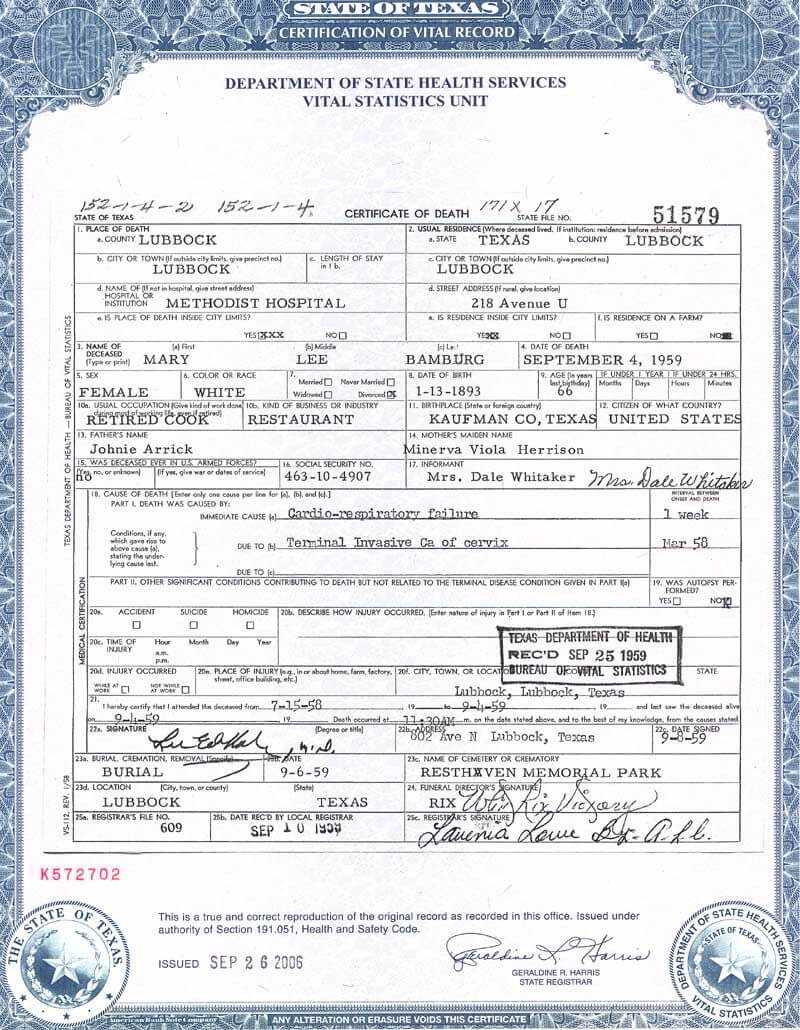 STATE OF TEXAS
CERTIFICATION OF VITAL RECORD
DEPARTMENT OF STATE HEALTH SERVICES
VITAL STATISTICS UNIT
152-1-4-2 152-1-4 171X 17
STATE OF TEXAS CERTIFICATE OF DEATH STATE FILE NO. 51579
1. PLACE OF DEATH
a. COUNTY LUBBOCK
2. USUAL RESIDENCE (Where deceased lived. If institution: residence before admission)
a. STATE TEXAS b. COUNTY LUBBOCK
b. CITY OR TOWN (If outside city limits, give precinct no.)
LUBBOCK
c. LENGTH OF STAY
in 1 b.
c. CITY OR TOWN (If outside city limits, give precinct no.)
LUBBOCK
d. NAME OF (If not in hospital, give street address)
HOSPITAL OR
INSTITUTION METHODIST HOSPITAL
d. STREET ADDRESS (If rural, give location)
218 Avenue U
e. IS PLACE OF DEATH INSIDE CITY LIMITS?
YES XXX NO
e. IS RESIDENCE INSIDE CITY LIMITS?
YES XX NO
f. IS RESIDENCE ON A FARM?
YES NO
3. NAME OF
DECEASED
(Type or print)
(a) First (b) Middle (c) Last
MARY LEE BAMBURG
4. DATE OF DEATH
SEPTEMBER 4, 1959
5. SEX
FEMALE
6. COLOR OR RACE
WHITE
7.
Married Never Married
Widowed Divorced X
8. DATE OF BIRTH
1-13-1893
9. AGE (In years
last birthday)
66
IF UNDER 1 YEAR IF UNDER 24 HRS.
Months Days Hours Minutes
10a. USUAL OCCUPATION (Give kind of work done
during most of working life, even if retired)
RETIRED COOK
10b. KIND OF BUSINESS OR INDUSTRY
RESTAURANT
11. BIRTHPLACE (State or foreign country)
KAUFMAN CO, TEXAS
12. CITIZEN OF WHAT COUNTRY?
UNITED STATES
13. FATHER'S NAME
Johnie Arrick
14. MOTHER'S MAIDEN NAME
Minerva Viola Herrison
15. WAS DECEASED EVER IN U.S. ARMED FORCES?
(Yes, no, or unknown) (If yes, give war or dates of service)
no
16. SOCIAL SECURITY NO.
463-10-4907
17. INFORMANT
Mrs. Dale Whitaker Mrs. Dale Whitaker
18. CAUSE OF DEATH [Enter only one cause per line for (a), (b), and (c).]
INTERVAL BETWEEN
ONSET AND DEATH
PART I. DEATH WAS CAUSED BY:
IMMEDIATE CAUSE (a) Cardio-respiratory failure 1 week
Conditions, if any,
which gave rise to
above cause (a),
stating the under-
lying cause last.
DUE TO (b) Terminal Invasive Ca of cervix Mar 58
DUE TO (c)
PART II. OTHER SIGNIFICANT CONDITIONS CONTRIBUTING TO DEATH BUT NOT RELATED TO THE TERMINAL DISEASE CONDITION GIVEN IN PART I(a)
19. WAS AUTOPSY PER-
FORMED?
YES NO X
20a. ACCIDENT SUICIDE HOMICIDE
20b. DESCRIBE HOW INJURY OCCURRED. (Enter nature of injury in Part I or Part II of Item 18.)
20c. TIME OF
INJURY
Hour Month Day Year
a.m.
p.m.
TEXAS DEPARTMENT OF HEALTH
REC'D SEP 25 1959
BUREAU OF VITAL STATISTICS
20d. INJURY OCCURRED
WHILE AT
WORK
NOT WHILE
AT WORK
20e. PLACE OF INJURY (e.g., in or about home, farm, factory,
street, office building, etc.)
20f. CITY, TOWN, OR LOCATION STATE
Lubbock, Lubbock, Texas
21.
I hereby certify that I attended the deceased from 7-15-58 19 to 9-4-59 19 and last saw the deceased alive
on 9-4-59 19 Death occurred at 11:30AM m. on the date stated above, and to the best of my knowledge, from the causes stated.
22a. SIGNATURE (Degree or title)
M.D.
22b. ADDRESS
802 Ave N Lubbock, Texas
22c. DATE SIGNED
9-8-59
23a. BURIAL, CREMATION, REMOVAL (Specify)
BURIAL
23b. DATE
9-6-59
23c. NAME OF CEMETERY OR CREMATORY
RESTHAVEN MEMORIAL PARK
23d. LOCATION (City, town, or county) (State)
LUBBOCK TEXAS
24. FUNERAL DIRECTOR'S SIGNATURE
RIX Rix Vickory
25a. REGISTRAR'S FILE NO.
609
25b. DATE REC'D BY LOCAL REGISTRAR
SEP 10 1959
25c. REGISTRAR'S SIGNATURE
Lavenia Lowe
TEXAS DEPARTMENT OF HEALTH — BUREAU OF VITAL STATISTICS
MEDICAL CERTIFICATION
VS-112, REV. 1/58
K572702
This is a true and correct reproduction of the original record as recorded in this office. Issued under
authority of Section 191.051, Health and Safety Code.
ISSUED SEP 26 2006
Geraldine R. Harris
GERALDINE R. HARRIS
STATE REGISTRAR
THE STATE OF TEXAS
DEPARTMENT OF STATE HEALTH SERVICES
STATE OF TEXAS
VITAL STATISTICS
American Bank Note Company
ANY ALTERATION OR ERASURE VOIDS THIS CERTIFICATE